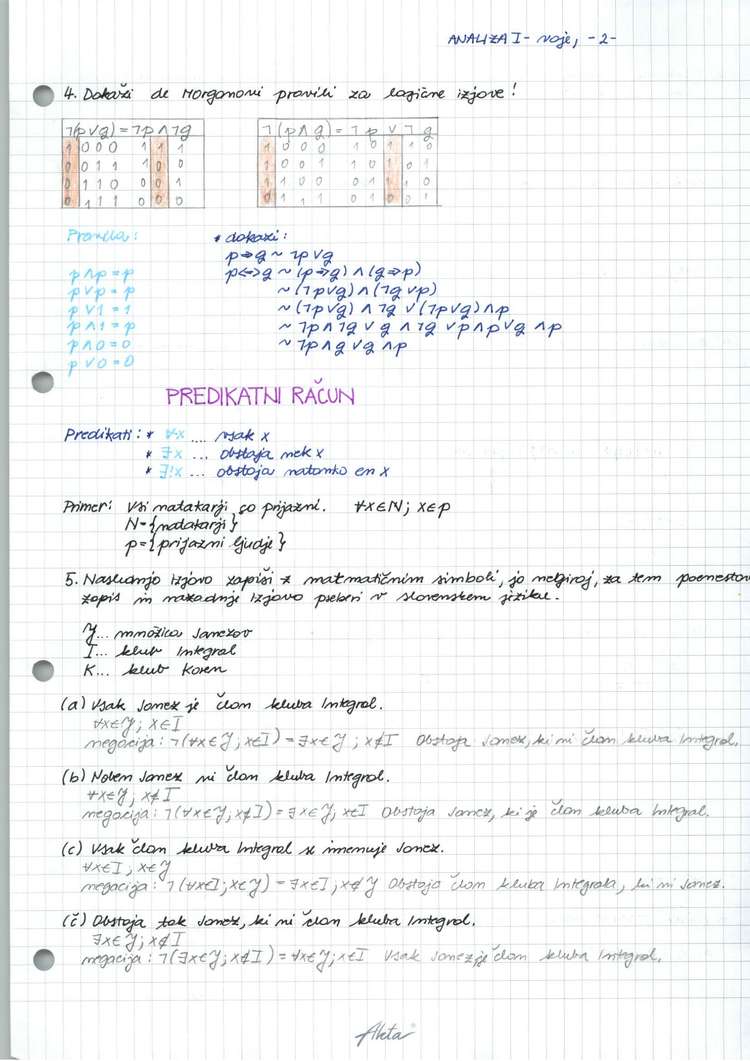 ANALIZA I - vaje, -2-
4. Dokaži de Morganovi pravili za logične izjave!
¬(p∨q) = ¬p∧¬q
1 0 0 0 1 1 1
0 0 1 1 1 0 0
0 1 1 0 0 0 1
0 1 1 1 0 0 0
¬(p∧q) = ¬p ∨ ¬q
1 0 0 0 1 0 1 1 0
1 0 0 1 1 0 1 0 1
1 1 0 0 0 1 1 1 0
0 1 1 1 0 1 0 0 1
Pravila:
p∧p = p
p∨p = p
p∨1 = 1
p∧1 = p
p∧0 = 0
p∨0 = 0
* dokaži:
p⇒q ~ ¬p∨q
p⇔q ~ (p⇒q) ∧ (q⇒p)
~ (¬p∨q) ∧ (¬q∨p)
~ (¬p∨q) ∧ ¬q ∨ (¬p∨q) ∧p
~ ¬p∧¬q ∨ q ∧ ¬q ∨p∧p∨q ∧p
~ ¬p∧q ∨q ∧p
PREDIKATNI RAČUN
Predikati: * ∀x .... vsak x
* ∃x ... obstaja nek x
* ∃!x ... obstaja natanko en x
Primer: Vsi matakarji so prijazni. ∀x∈N; x∈p
N={matakarji}
p={prijazni ljudje}
5. Naslednjo izjavo zapiši z matmatičnim simboli, jo negiraj, za tem poenestav
zapis in nazadnje izjavo preberi v slovenskem jeziku.
J... množica Janezov
I... klub Integral
K... klub Koren
(a) Vsak Janez je član kluba Integral.
∀x∈J; x∈I
negacija: ¬(∀x∈J; x∈I) = ∃x∈J; x∉I Obstaja Janez, ki ni član kluba Integral.
(b) Noben Janez ni član kluba Integral.
∀x∈J; x∉I
negacija: ¬(∀x∈J; x∉I) = ∃x∈J; x∈I Obstaja Janez, ki je član kluba Integral.
(c) Vsak član kluba Integral se imenuje Janez.
∀x∈I; x∈J
negacija: ¬(∀x∈I; x∈J) = ∃x∈I; x∉J Obstaja član kluba Integrala, ki ni Janez.
(č) Obstaja tak Janez, ki ni član kluba Integral.
∃x∈J; x∉I
negacija: ¬(∃x∈J; x∉I) = ∀x∈J; x∈I Vsak Janez je član kluba Integral.
Akta